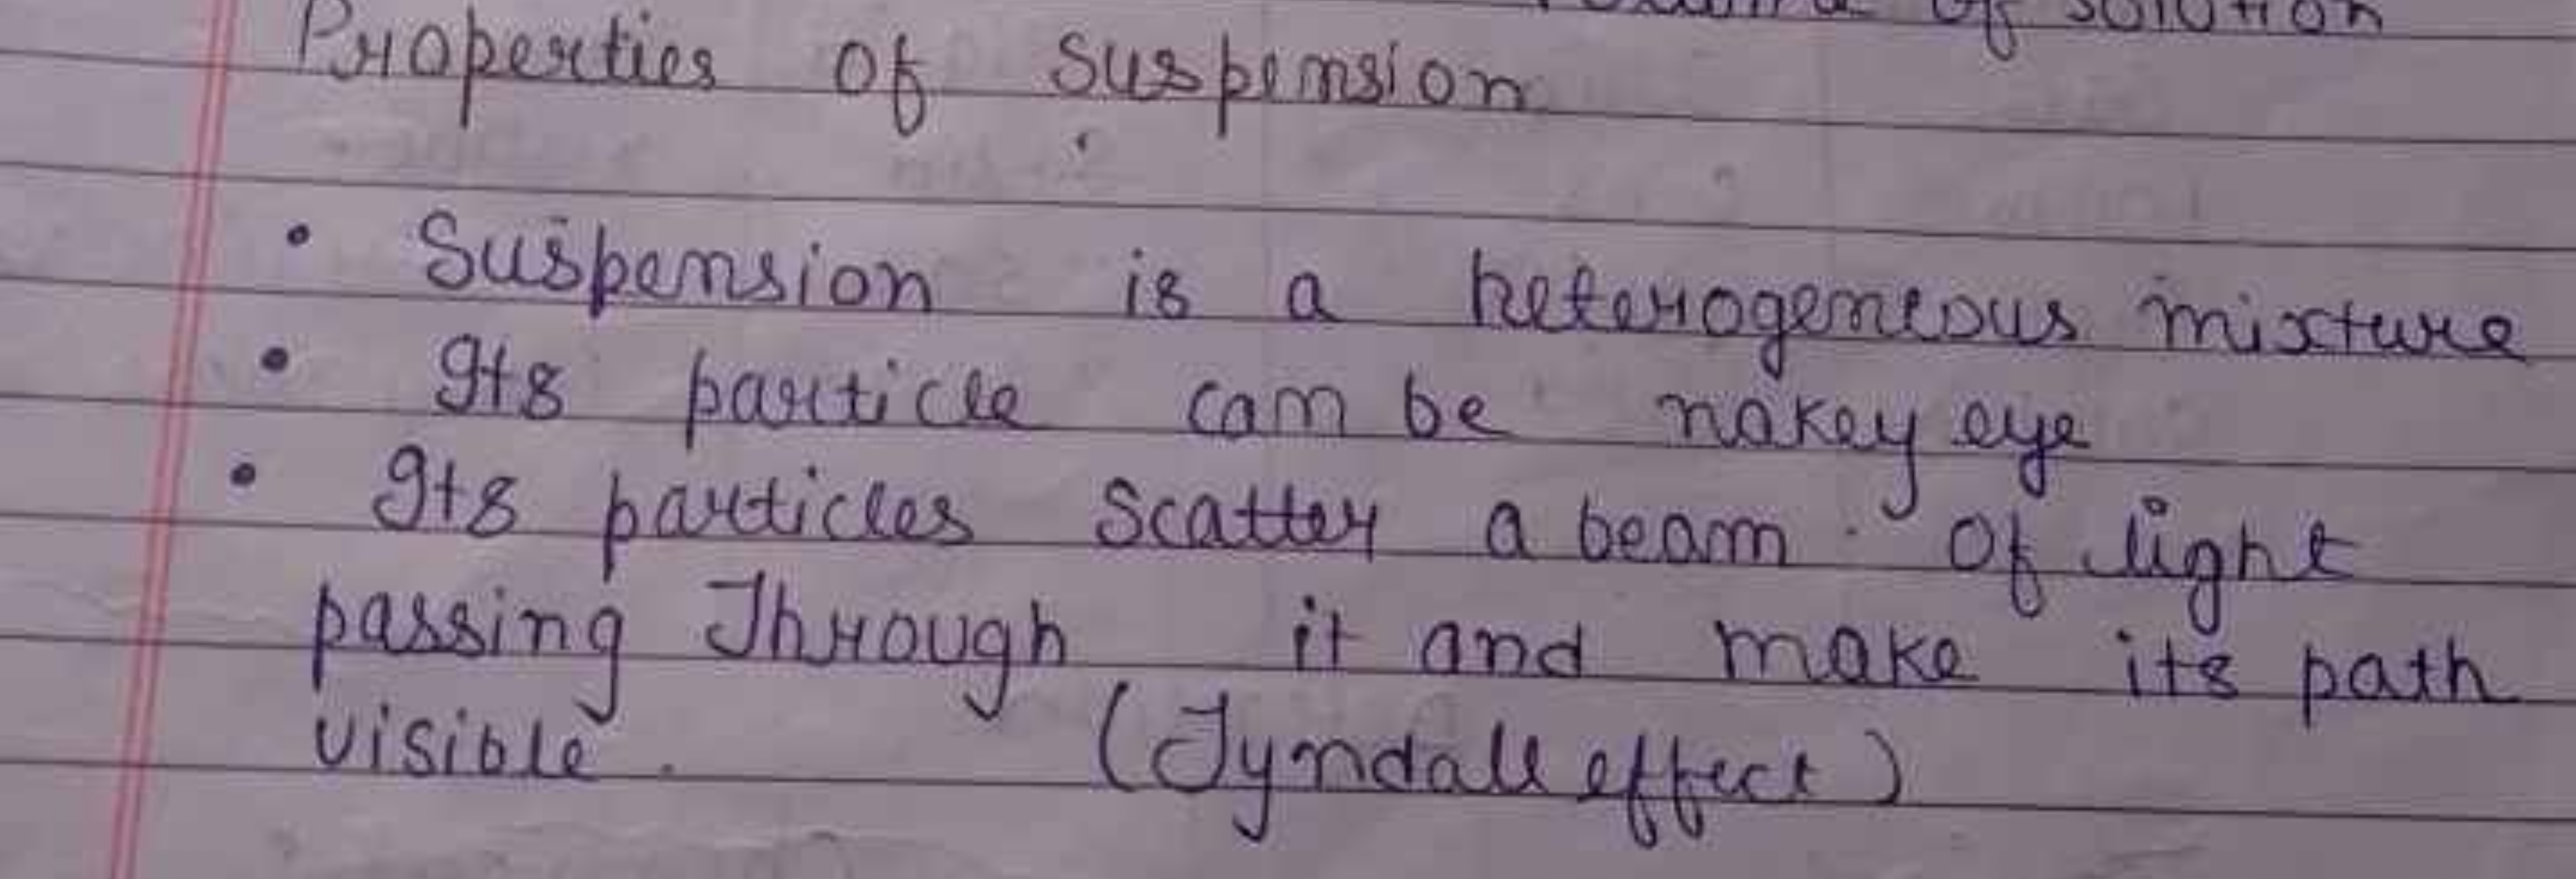 of solution
Properties of Suspension
• Suspension is a heterogeneous mixture
• Its particle can be nakey eye
• Its particles Scatter a beam of light
passing Through it and make its path
visible. (Tyndall effect)